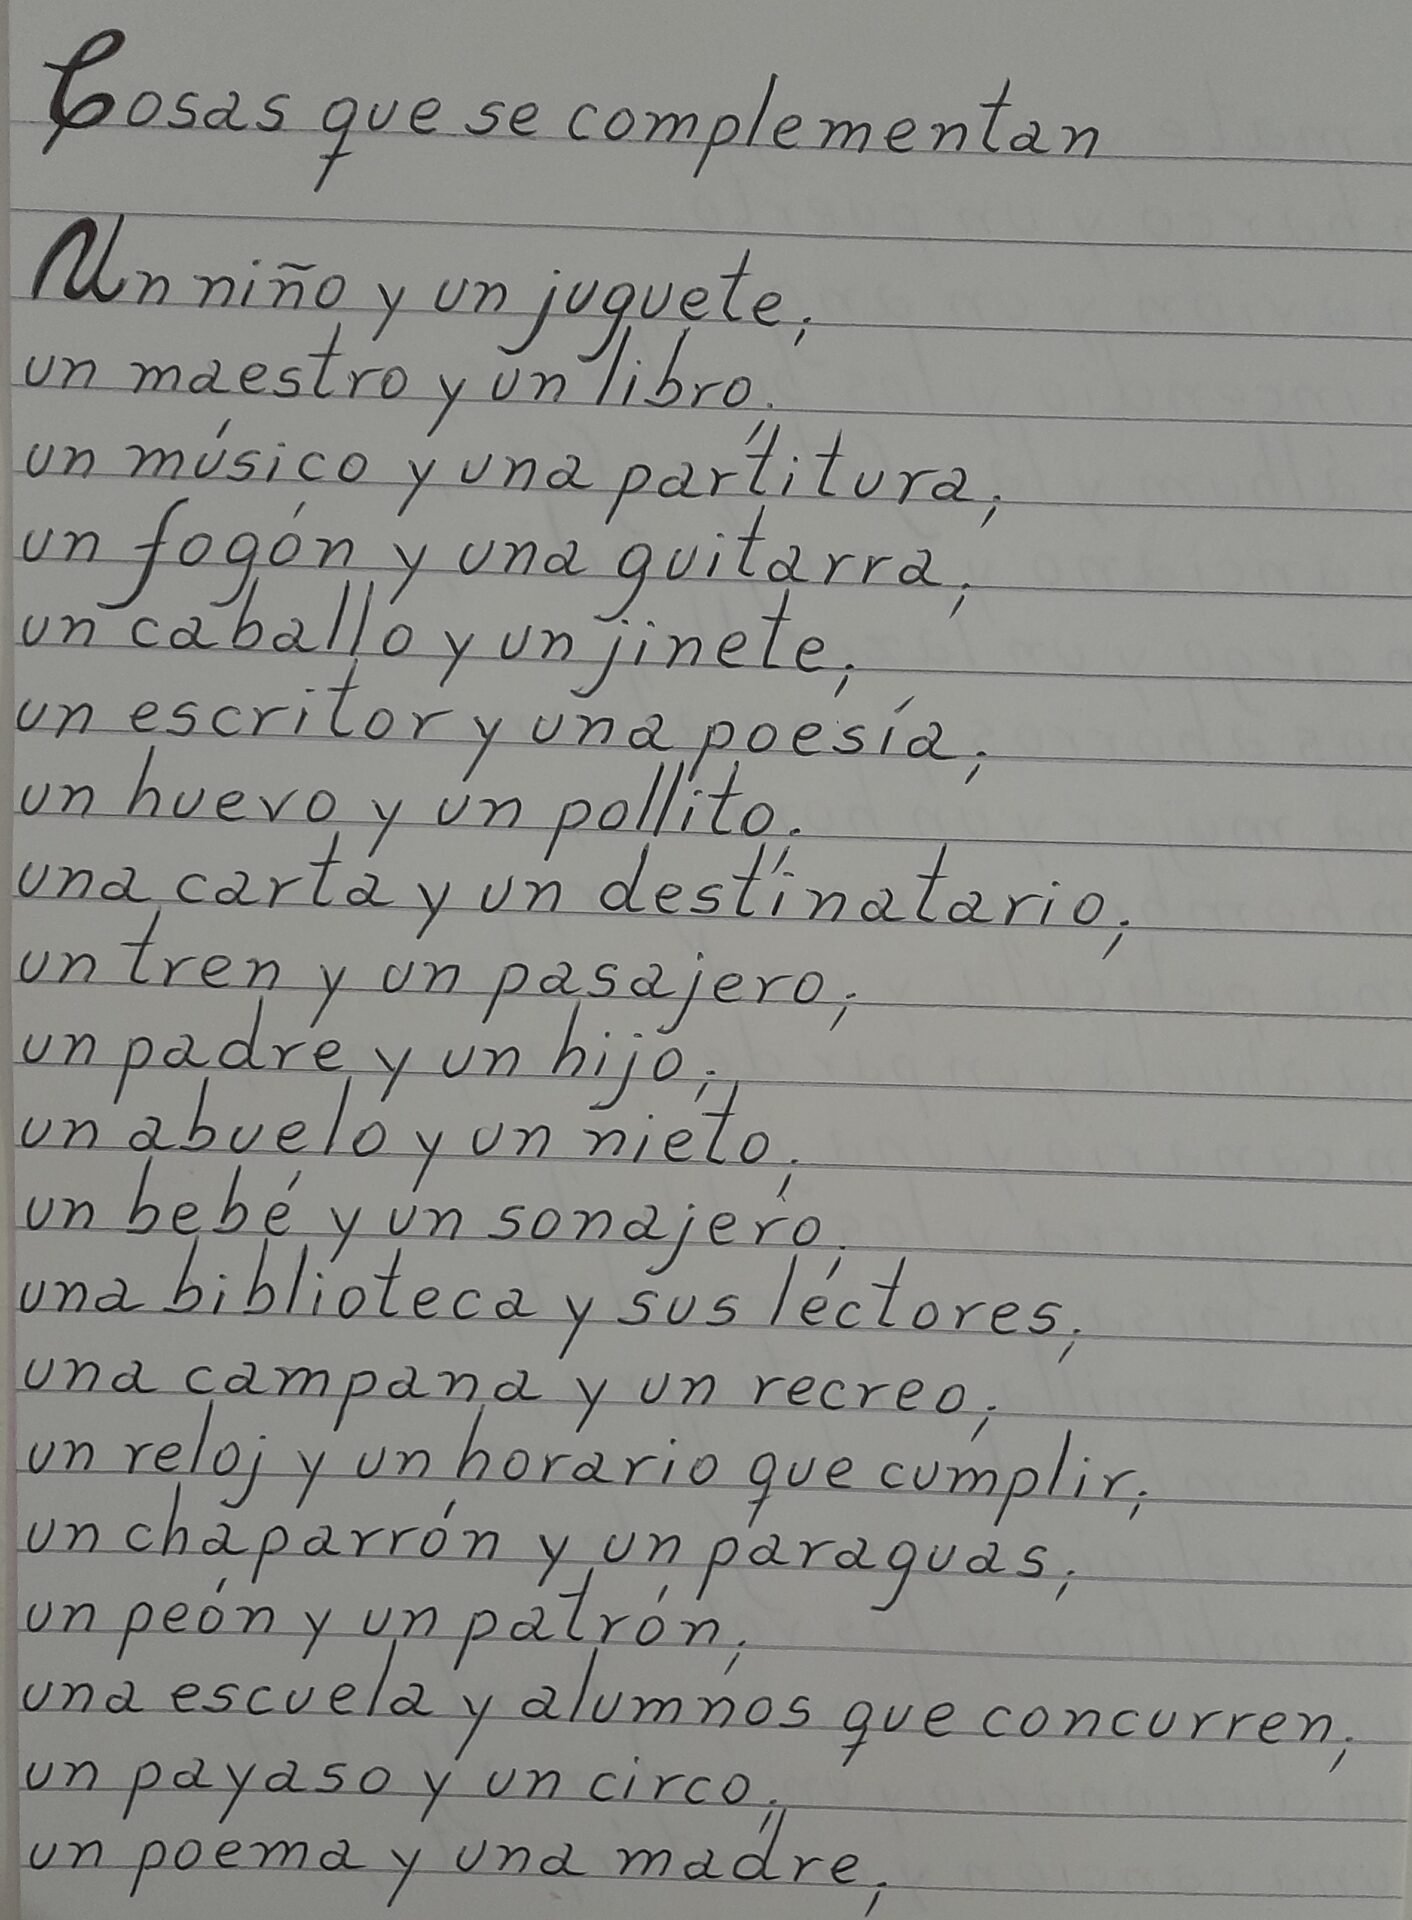 Cosas que se complementan
Un niño y un juguete;
un maestro y un libro;
un músico y una partitura;
un fogón y una guitarra;
un caballo y un jinete;
un escritor y una poesía;
un huevo y un pollito;
una carta y un destinatario;
un tren y un pasajero;
un padre y un hijo;
un abuelo y un nieto;
un bebé y un sonajero;
una biblioteca y sus lectores;
una campana y un recreo;
un reloj y un horario que cumplir;
un chaparrón y un paraguas;
un peón y un patrón;
una escuela y alumnos que concurren;
un payaso y un circo;
un poema y una madre;